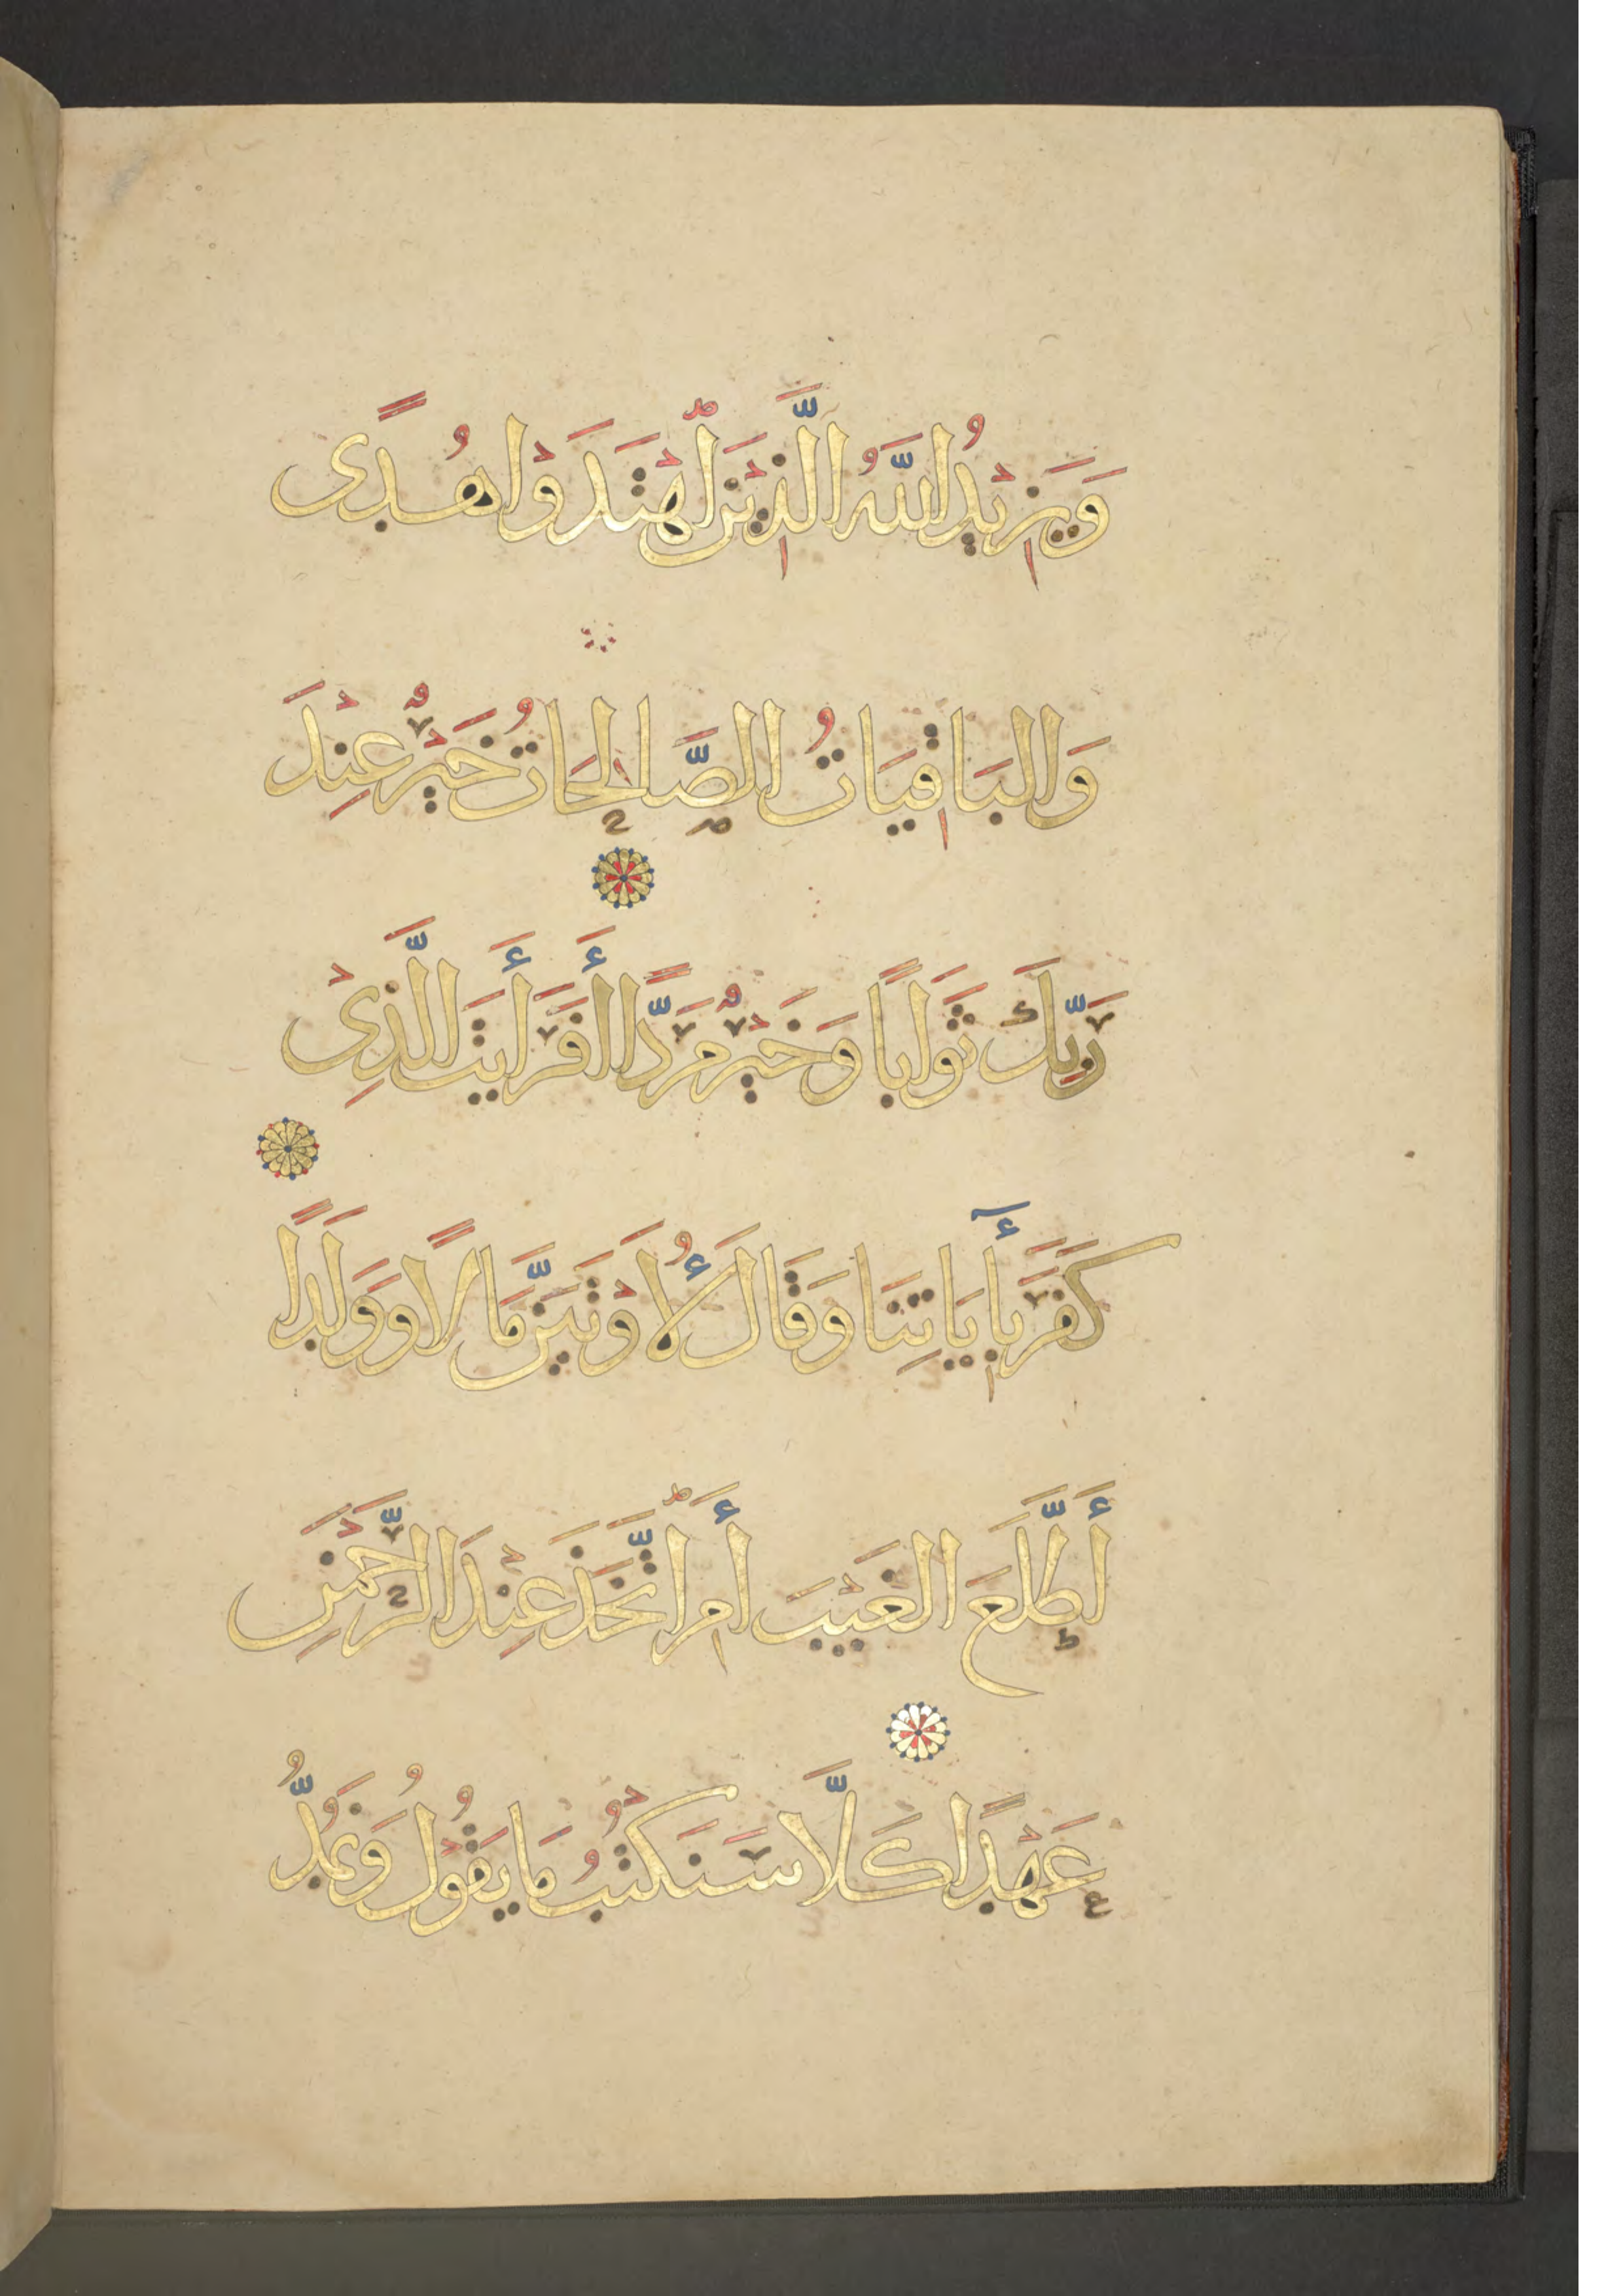 وَيَزِيْدُ اللَّهُ الَّذِيْنَ اهْتَدَوْا هُدًى
وَالبَاقِيَاتُ الصَّالِحَاتُ خَيْرٌ عِنْدَ
رَبِّكَ ثَوَابًا وَخَيْرٌ مَرَدًّا أَفَرَأَيتَ الَّذِىْ
كَفَرَ بِأٓيَاتِنَا وَقَالَ لَأُوْتَيَنَّ مَالًا وَوَلَدًا
أَطَّلَعَ الغَيْبَ أَمِ اتَّخَذَ عِنْدَ الرَّحْمَنِ
عَهْدًا كَلَّا سَنَكْتُبُ مَا يَقُوْلُ وَنَمُدُّ